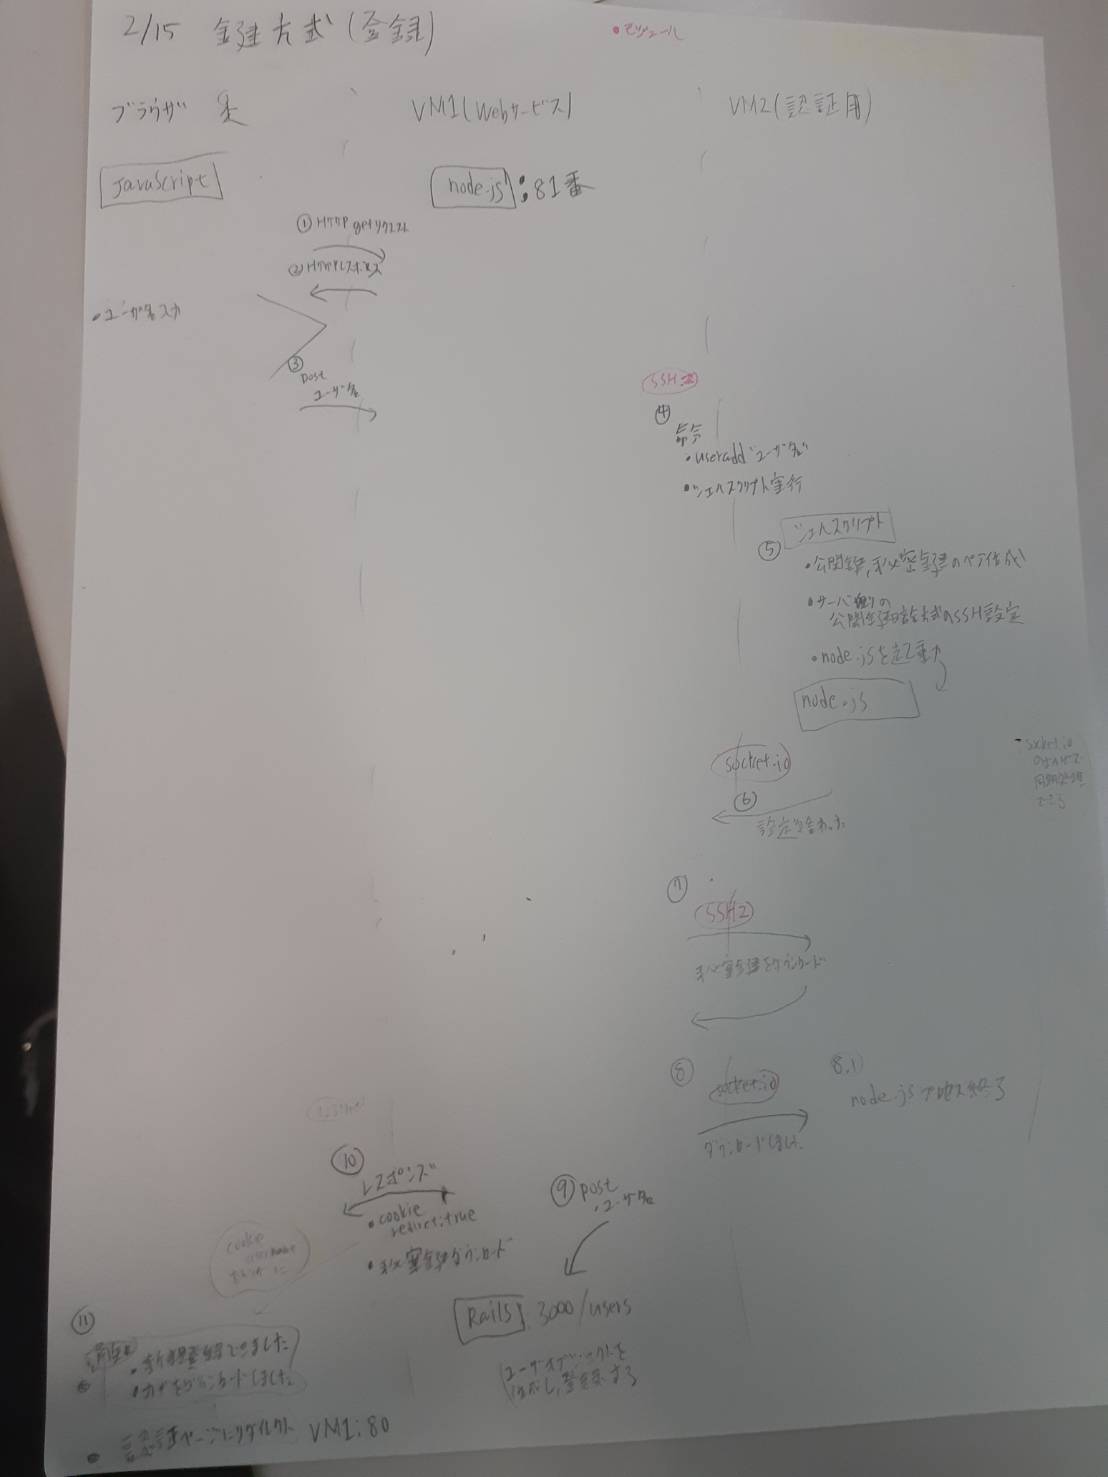 2/15 鍵方式(登録)
•モジュール
ブラウザ
VM1(Webサービス)
VM2(認証用)
JavaScript
node.js:81番
① HTTP getリクエスト
② HTTPレスポンス
•ユーザ名入力
③
post
ユーザ名
SSH2
④
命令
•useradd "ユーザ名"
•シェルスクリプト実行
シェルスクリプト
⑤
•公開鍵,秘密鍵のペア作成
•サーバ側の
公開鍵認証方式のSSH設定
•node.jsを起動
node.js
socket.io
⑥
設定終わった
socket.io
同期処理
できる
⑦
SSH2
秘密鍵をダウンロード
⑧
socket.io
ダウンロードしました
8.1)
node.js プロセス終了
⑩
レスポンス
•cookie
redirect:true
•秘密鍵ダウンロード
⑨ post
•ユーザ名
cookie
username
Rails 3000/users
ユーザオブジェクトを
作成し,登録する
⑪
•新規登録できました
•カギをダウンロードしました
•認証ページにリダイレクト VM1:80